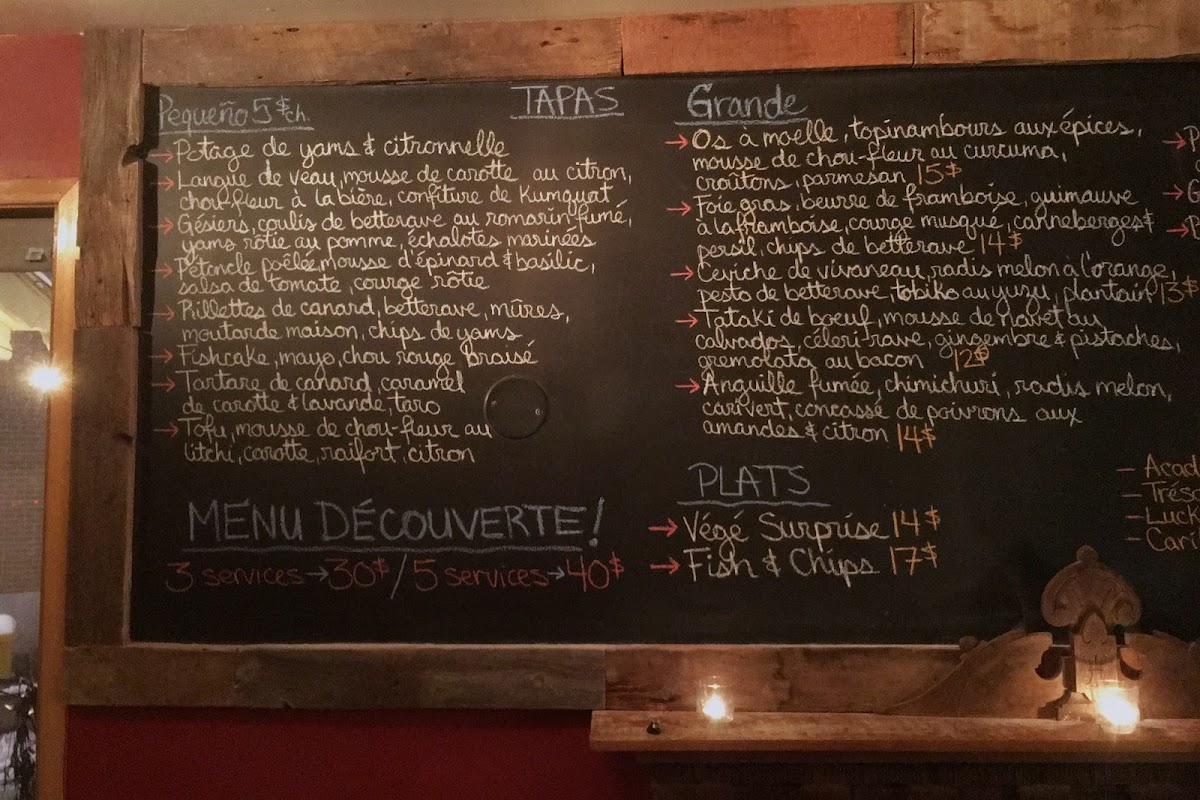 TAPAS
Pequeño 5$ch.
→ Potage de yams & citronnelle
→ Langue de veau, mousse de carotte au citron,
chou-fleur à la bière, confiture de Kumquat
→ Gésiers, coulis de betterave au romarin fumé,
yams rôtie au pomme, échalotes marinées
→ Pétoncle poêlée, mousse d'épinard & basilic,
salsa de tomate, courge rôtie
→ Rillettes de canard, betterave, mûres,
moutarde maison, chips de yams
→ Fishcake, mayo, chou rouge braisé
→ Tartare de canard, caramel
de carotte & lavande, taro
→ Tofu, mousse de chou-fleur au
litchi, carotte, raifort, citron
MENU DÉCOUVERTE!
3 services → 30$ / 5 services → 40$
Grande
→ Os à moelle, topinambours aux épices,
mousse de chou-fleur au curcuma,
croûtons, parmesan 15$
→ Foie gras, beurre de framboise, guimauve
à la framboise, courge musqué, canneberges &
persil, chips de betterave 14$
→ Ceviche de vivaneau, radis melon à l'orange,
pesto de betterave, tobiko au yuzu, plantain 13$
→ Tataki de boeuf, mousse de navet au
calvados, céleri-rave, gingembre & pistaches,
gremolata au bacon 12$
→ Anguille fumée, chimichuri, radis melon,
cari vert, concassé de poivrons aux
amandes & citron 14$
PLATS
→ Végé Surprise 14$
→ Fish & Chips 17$
- Acad
- Trés
- Luck
- Cari